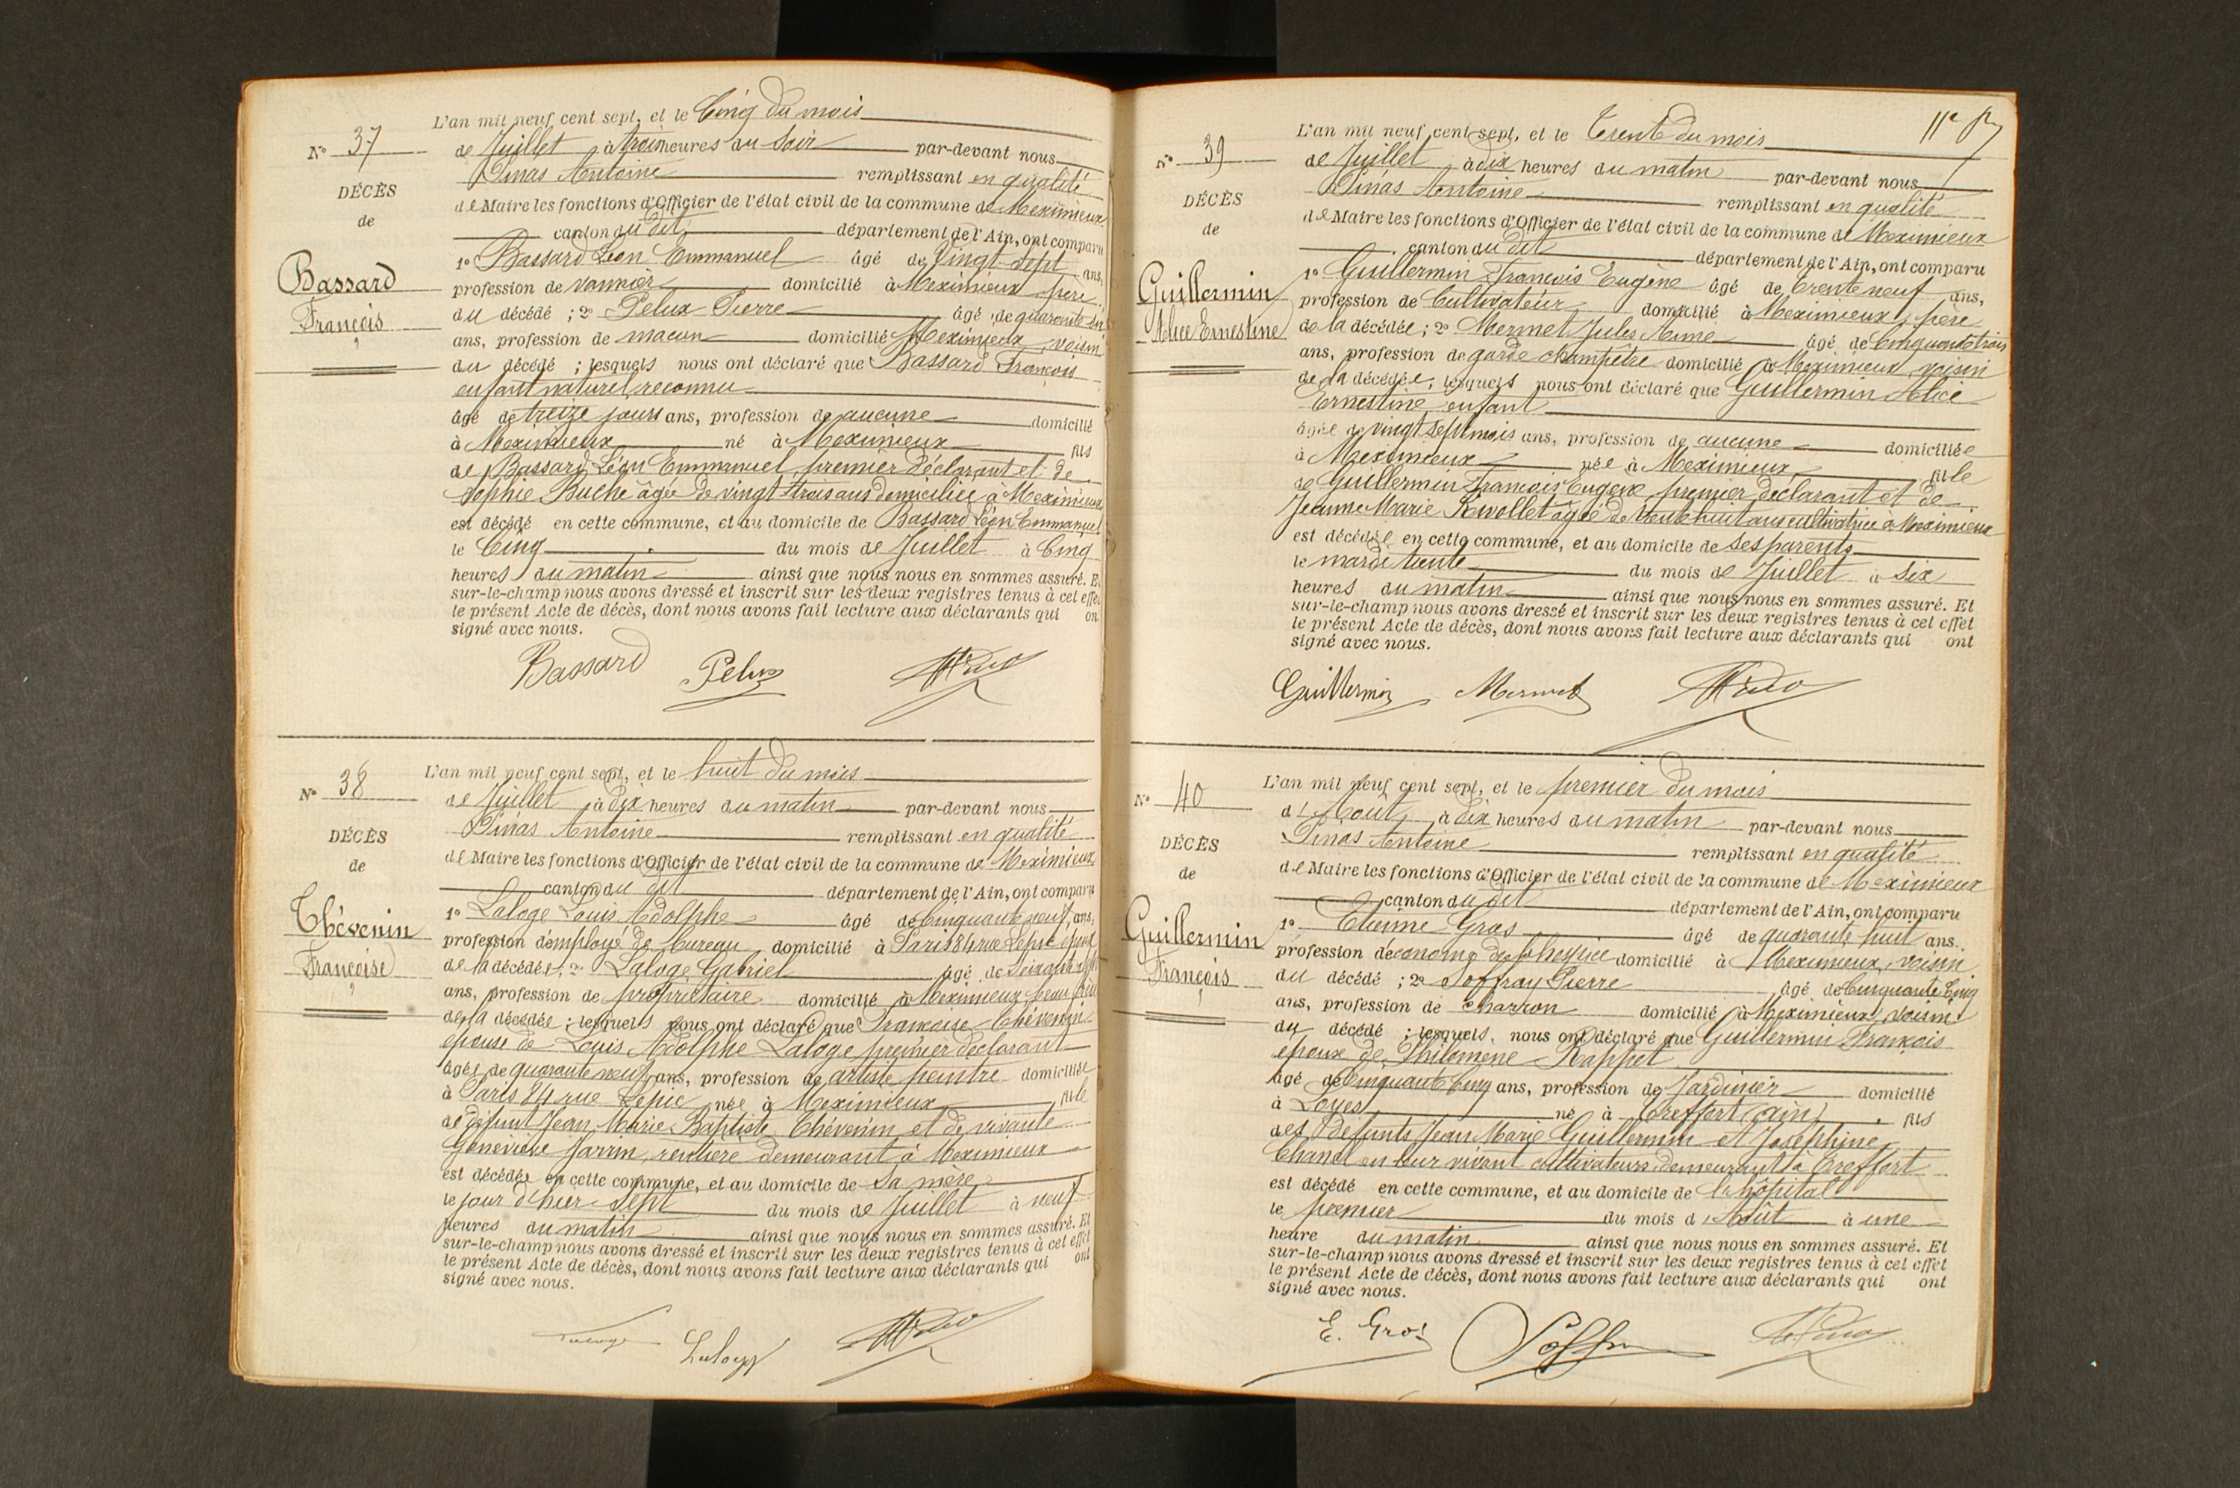 N° 37
DÉCÈS
de
Bassard
François
L'an mil neuf cent sept, et le Cinq du mois
de Juillet à trois heures du Soir par-devant nous
Pinas Antoine remplissant en qualité
de Maire les fonctions d'Officier de l'état civil de la commune de Meximieux
canton du dit département de l'Ain, ont comparu
1° Bassard Léon Emmanuel âgé de Vingt-sept ans,
profession de vannier domicilié à Meximieux père
du décédé ; 2° Pelux Pierre âgé de quarante six
ans, profession de maçon domicilié à Meximieux voisin
du décédé ; lesquels nous ont déclaré que Bassard François
enfant naturel reconnu
âgé de treize jours ans, profession de aucune domicilié
à Meximieux né à Meximieux fils
de Bassard Léon Emmanuel premier déclarant et de
Sophie Buche âgée de vingt trois ans domiciliée à Meximieux
est décédé en cette commune, et au domicile de Bassard Léon Emmanuel
le Cinq du mois de Juillet à Cinq
heures du matin ainsi que nous nous en sommes assuré. E
sur-le-champ nous avons dressé et inscrit sur les deux registres tenus à cet effet
le présent Acte de décès, dont nous avons fait lecture aux déclarants qui on
signé avec nous.
Bassard Pelux
N° 38
DÉCÈS
de
Thévenin
Françoise
L'an mil neuf cent sept, et le huit du mois
de Juillet à dix heures du matin par-devant nous
Pinas Antoine remplissant en qualité
de Maire les fonctions d'Officier de l'état civil de la commune de Meximieux
canton du dit département de l'Ain, ont comparu
1° Laloge Louis Adolphe âgé de Cinquante neuf ans,
profession d'employé de bureau domicilié à Paris 84 rue Lepic époux
de la décédée ; 2° Laloge Gabriel âgé de Soixante
ans, profession de propriétaire domicilié à Meximieux beau frère
de la décédée ; lesquels nous ont déclaré que Françoise Thévenin
épouse de Louis Adolphe Laloge premier déclarant
âgée de quarante neuf ans, profession de artiste peintre domiciliée
à Paris 84 rue Lepic née à Meximieux fille
de défunt Jean Marie Baptiste Thévenin et de vivante
Geneviève Jarrin, rentière demeurant à Meximieux
est décédée en cette commune, et au domicile de sa mère
le jour d'hier Sept du mois de Juillet à neuf
heures du matin ainsi que nous nous en sommes assuré. Et
sur-le-champ nous avons dressé et inscrit sur les deux registres tenus à cet effet
le présent Acte de décès, dont nous avons fait lecture aux déclarants qui ont
signé avec nous.
Laloge
N° 39
DÉCÈS
de
Guillermin
Alice Ernestine
L'an mil neuf cent sept, et le Trente du mois
de Juillet à dix heures du matin par-devant nous
Pinas Antoine remplissant en qualité
de Maire les fonctions d'Officier de l'état civil de la commune de Meximieux
canton du dit département de l'Ain, ont comparu
1° Guillermin François Eugène âgé de trente neuf ans,
profession de Cultivateur domicilié à Meximieux, père
de la décédée ; 2° Mermet Jules Aimé âgé de Cinquante trois
ans, profession de garde champêtre domicilié à Meximieux voisin
de la décédée ; lesquels nous ont déclaré que Guillermin Alice
Ernestine enfant
âgée de vingt sept mois ans, profession de aucune domiciliée
à Meximieux née à Meximieux fille
de Guillermin François Eugène premier déclarant et de
Jeanne Marie Rivollet âgée de trente huit ans cultivatrice à Meximieux
est décédée en cette commune, et au domicile de ses parents
le mardi trente du mois de Juillet à six
heures du matin ainsi que nous nous en sommes assuré. Et
sur-le-champ nous avons dressé et inscrit sur les deux registres tenus à cet effet
le présent Acte de décès, dont nous avons fait lecture aux déclarants qui ont
signé avec nous.
Guillermin Mermet
N° 40
DÉCÈS
de
Guillermin
François
L'an mil neuf cent sept, et le premier du mois
d'Août à dix heures du matin par-devant nous
Pinas Antoine remplissant en qualité
de Maire les fonctions d'Officier de l'état civil de la commune de Meximieux
canton du dit département de l'Ain, ont comparu
1° Etienne Gros âgé de quarante huit ans
profession d'économe de l'hospice domicilié à Meximieux, voisin
du décédé ; 2° Soffray Pierre âgé de Cinquante Cinq
ans, profession de charron domicilié à Meximieux, voisin
du décédé ; lesquels nous ont déclaré que Guillermin François
époux de Philomène Rappet
âgé de Cinquante Cinq ans, profession de Jardinier domicilié
à Loyes né à Treffort (Ain) fils
des défunts Jean Marie Guillermin et Joséphine
Chanel en leur vivant cultivateurs demeurant à Treffort
est décédé en cette commune, et au domicile de l'hôpital
le premier du mois d'Août à une
heure du matin ainsi que nous nous en sommes assuré. Et
sur-le-champ nous avons dressé et inscrit sur les deux registres tenus à cet effet
le présent Acte de décès, dont nous avons fait lecture aux déclarants qui ont
signé avec nous.
E. Gros